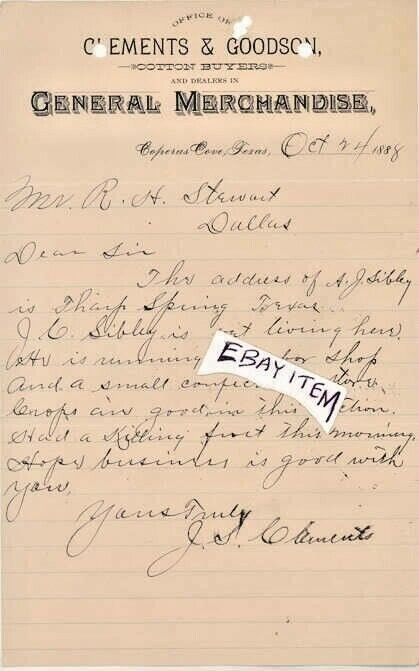 OFFICE OF
CLEMENTS & GOODSON,
COTTON BUYERS
AND DEALERS IN
GENERAL MERCHANDISE,
Coperas Cove, Texas, Oct 24 1888
Mr. R. H. Stewart
Dallas
Dear Sir
The address of A. J. Sibley
is Tharp Spring Texas
J. C. Sibley is living here
He is running shop
And a small
Crops are good in this
Had a Killing frost this morning
Hope business is good with
you.
Yours Truly
J. S. Clements
EBAY ITEM